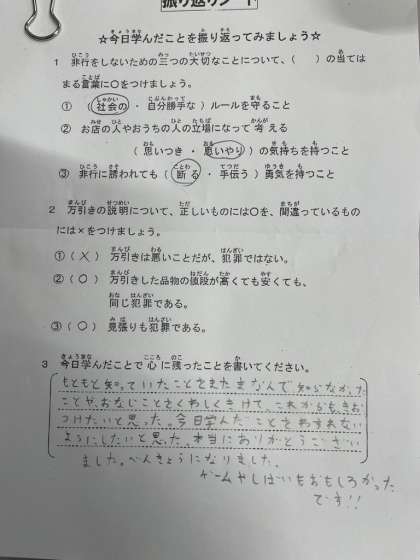 振り返りシート
☆今日学んだことを振り返ってみましょう☆
1 非行をしないための三つの大切なことについて、（ ）の当ては
まる言葉に○をつけましょう。
①（ 社会の ・ 自分勝手な ）ルールを守ること
② お店の人やおうちの人の立場になって 考える
（ 思いつき ・ 思いやり ）の気持ちを持つこと
③ 非行に誘われても（ 断る ・ 手伝う ）勇気を持つこと
2 万引きの説明について、正しいものには○を、間違っているもの
には×をつけましょう。
①（ × ） 万引きは悪いことだが、犯罪ではない。
②（ ○ ） 万引きした品物の値段が高くても安くても、
同じ犯罪である。
③（ ○ ） 見張りも犯罪である。
3 今日学んだことで心に残ったことを書いてください。
もともと知っていたことをまたまなんで、知らなかった
ことや、おなじことをくわしくきけて、これからも気を
つけたいと思った。今日学んだことをわすれない
ようにしたいと思った。本当にありがとうござい
ました。べんきょうになりました。
ゲームやしばいもおもしろかった
です!!